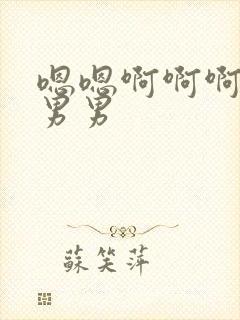 嗯嗯啊啊啊
男男
蘇笑萍